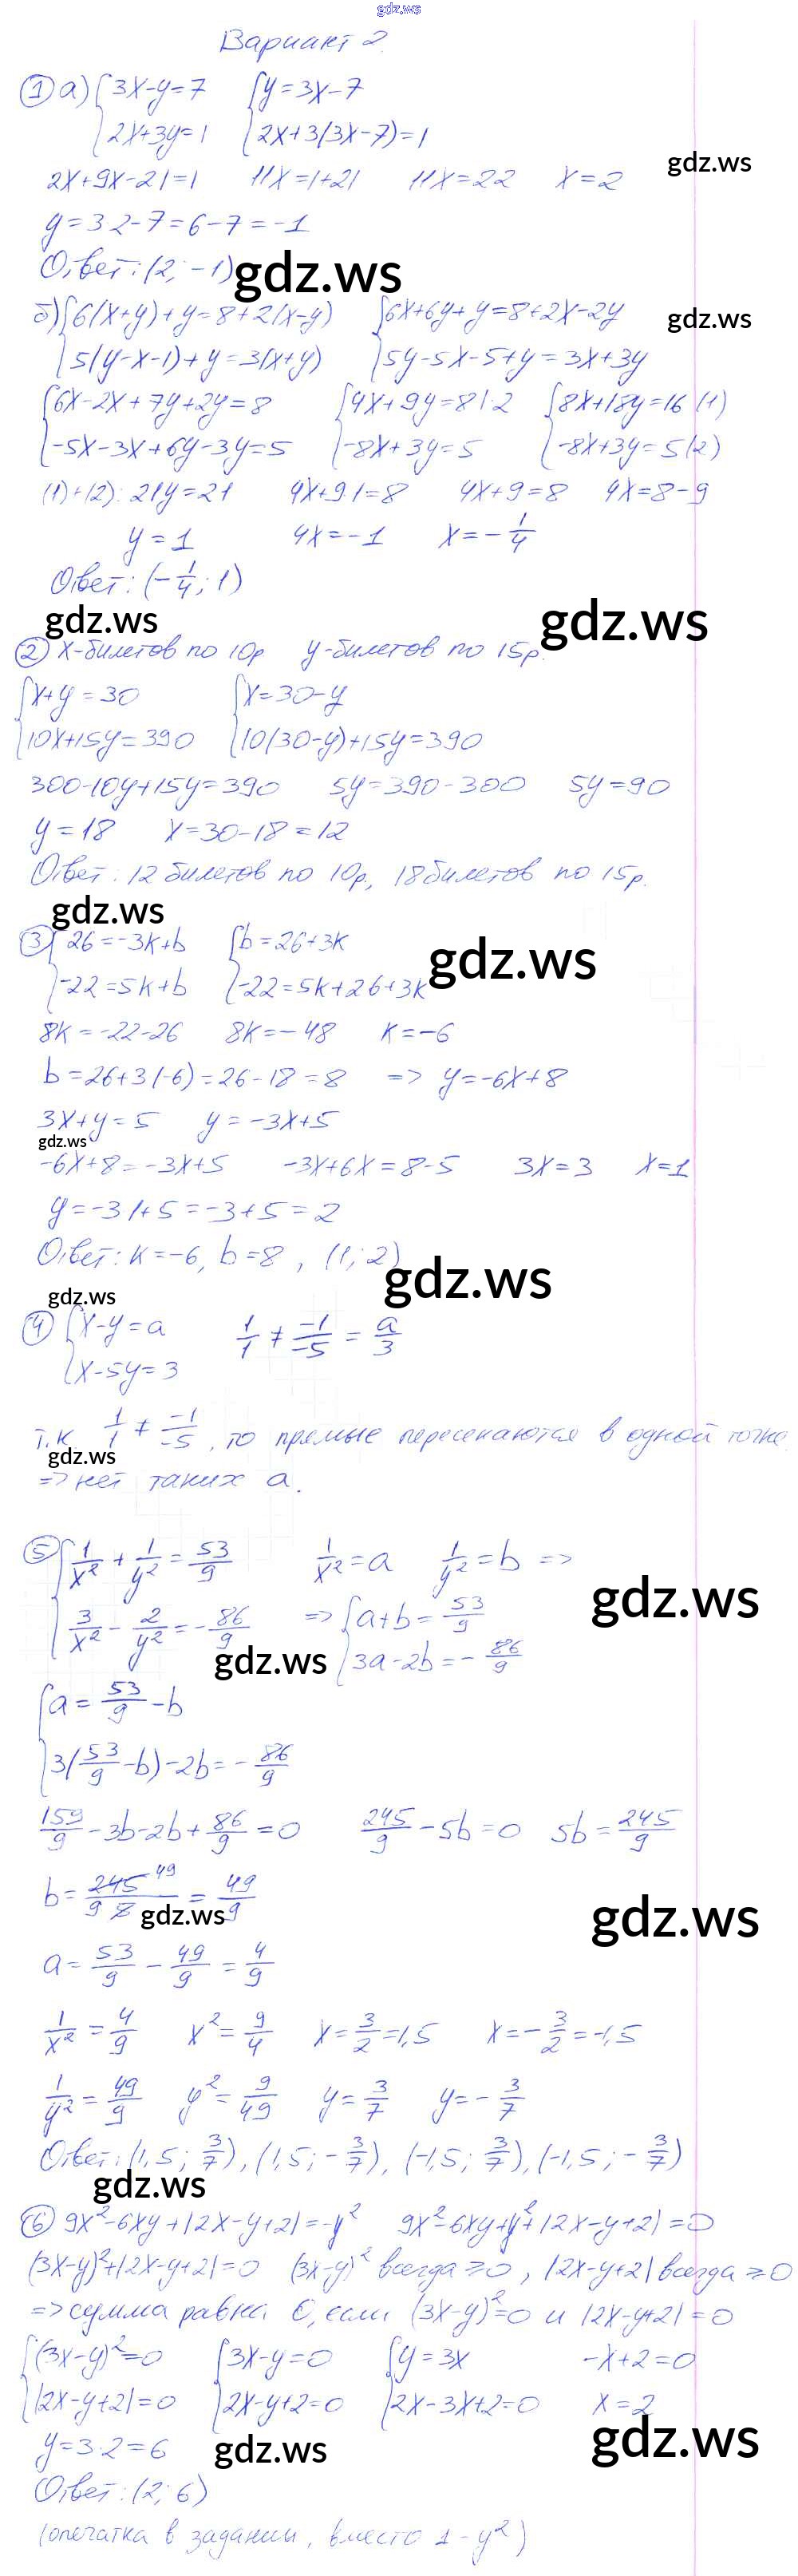 gdz.ws
Вариант 2.
① а) {3x-y=7 {y=3x-7
2x+3y=1 2x+3(3x-7)=1
gdz.ws
2x+9x-21=1 11x=1+21 11x=22 x=2
y=3·2-7=6-7=-1
Ответ: (2; -1)
gdz.ws
б) {6(x+y)+y=8+2(x-y) {6x+6y+y=8+2x-2y
gdz.ws
5(y-x-1)+y=3(x+y) 5y-5x-5+y=3x+3y
{6x-2x+7y+2y=8 {4x+9y=8 |·2 {8x+18y=16 (1)
-5x-3x+6y-3y=5 -8x+3y=5 -8x+3y=5 (2)
(1)+(2): 21y=21 4x+9·1=8 4x+9=8 4x=8-9
y=1 4x=-1 x=-1/4
Ответ: (-1/4; 1)
gdz.ws gdz.ws
② x-билетов по 10р y-билетов по 15р.
{x+y=30 {x=30-y
10x+15y=390 10(30-y)+15y=390
300-10y+15y=390 5y=390-300 5y=90
y=18 x=30-18=12
Ответ: 12 билетов по 10р, 18 билетов по 15р.
gdz.ws
③ {26=-3k+b {b=26+3k
gdz.ws
-22=5k+b -22=5k+26+3k
8k=-22-26 8k=-48 k=-6
b=26+3·(-6)=26-18=8 => y=-6x+8
3x+y=5 y=-3x+5
gdz.ws
-6x+8=-3x+5 -3x+6x=8-5 3x=3 x=1
y=-3·1+5=-3+5=2
Ответ: k=-6, b=8, (1; 2)
gdz.ws
gdz.ws
④ {x-y=a 1/1 ≠ -1/-5 = a/3
x-5y=3
т.к 1/1 ≠ -1/-5, то прямые пересекаются в одной точке.
gdz.ws
=> нет таких a.
⑤ {1/x²+1/y²=53/9 1/x²=a 1/y²=b =>
gdz.ws
3/x²-2/y²=-86/9 => {a+b=53/9
gdz.ws
3a-2b=-86/9
{a=53/9-b
3(53/9-b)-2b=-86/9
159/9-3b-2b+86/9=0 245/9-5b=0 5b=245/9
b=245 49/9·5=49/9
gdz.ws gdz.ws
a=53/9-49/9=4/9
1/x²=4/9 x²=9/4 x=3/2=1,5 x=-3/2=-1,5
1/y²=49/9 y²=9/49 y=3/7 y=-3/7
Ответ: (1,5; 3/7), (1,5; -3/7), (-1,5; 3/7), (-1,5; -3/7)
gdz.ws
⑥ 9x²-6xy+|2x-y+2|=-y² 9x²-6xy+y²+|2x-y+2|=0
(3x-y)²+|2x-y+2|=0 (3x-y)² всегда ≥0, |2x-y+2| всегда ≥0
=> сумма равна 0, если (3x-y)²=0 и |2x-y+2|=0
{(3x-y)²=0 {3x-y=0 {y=3x -x+2=0
|2x-y+2|=0 2x-y+2=0 2x-3x+2=0 x=2
gdz.ws
y=3·2=6
gdz.ws
Ответ: (2; 6)
(опечатка в задании, вместо 1 - y²)